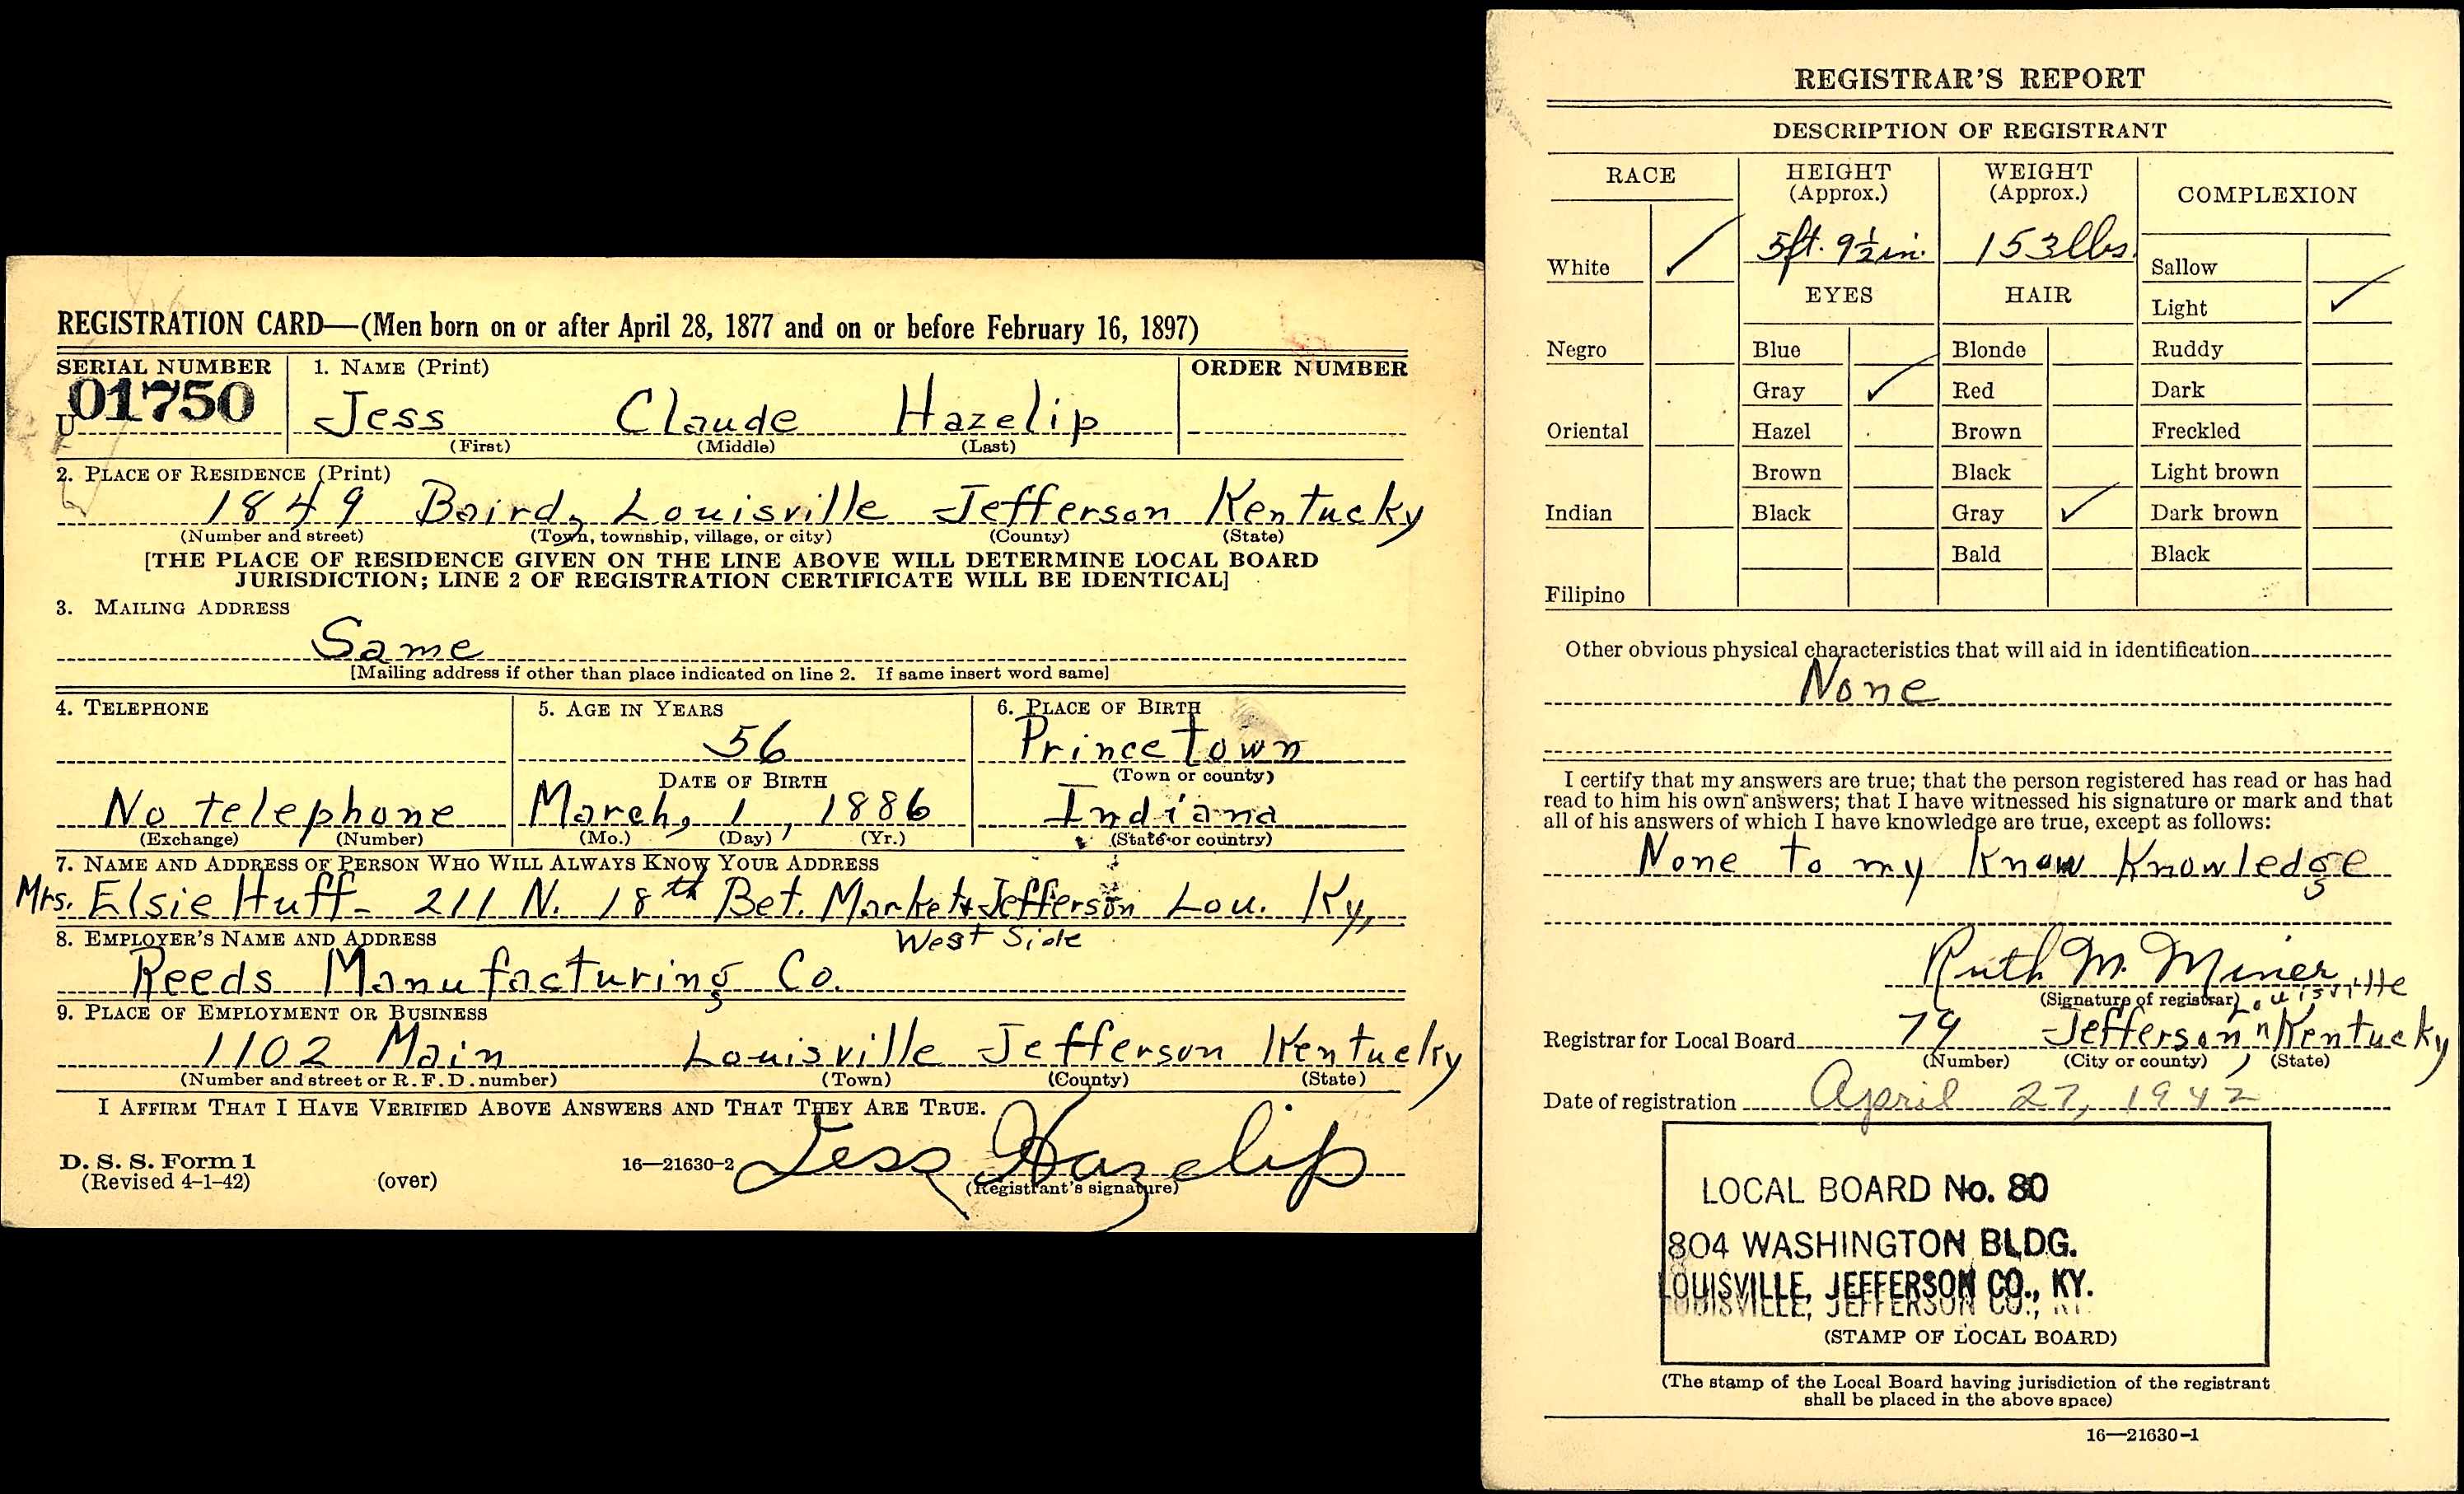 REGISTRATION CARD—(Men born on or after April 28, 1877 and on or before February 16, 1897)
SERIAL NUMBER
1. NAME (Print)
ORDER NUMBER
U 01750
Jess Claude Hazelip
(First) (Middle) (Last)
2. PLACE OF RESIDENCE (Print)
1849 Baird, Louisville Jefferson Kentucky
(Number and street) (Town, township, village, or city) (County) (State)
[THE PLACE OF RESIDENCE GIVEN ON THE LINE ABOVE WILL DETERMINE LOCAL BOARD
JURISDICTION; LINE 2 OF REGISTRATION CERTIFICATE WILL BE IDENTICAL]
3. MAILING ADDRESS
Same
[Mailing address if other than place indicated on line 2. If same insert word same]
4. TELEPHONE
5. AGE IN YEARS
6. PLACE OF BIRTH
56
Princetown
DATE OF BIRTH
(Town or county)
No telephone
March, 1, 1886
Indiana
(Exchange) (Number)
(Mo.) (Day) (Yr.)
(State or country)
7. NAME AND ADDRESS OF PERSON WHO WILL ALWAYS KNOW YOUR ADDRESS
Mrs. Elsie Huff- 211 N. 18th Bet. Market & Jefferson Lou. Ky,
West Side
8. EMPLOYER'S NAME AND ADDRESS
Reeds Manufacturing Co.
9. PLACE OF EMPLOYMENT OR BUSINESS
1102 Main Louisville Jefferson Kentucky
(Number and street or R. F. D. number) (Town) (County) (State)
I AFFIRM THAT I HAVE VERIFIED ABOVE ANSWERS AND THAT THEY ARE TRUE.
Jess Hazelip
D. S. S. Form 1
(Revised 4-1-42)
(over)
16—21630-2
(Registrant's signature)
REGISTRAR'S REPORT
DESCRIPTION OF REGISTRANT
RACE
HEIGHT
(Approx.)
WEIGHT
(Approx.)
COMPLEXION
White ✓
5ft. 9½in.
153lbs.
Sallow
EYES
HAIR
Light ✓
Negro
Blue
Blonde
Ruddy
Gray ✓
Red
Dark
Oriental
Hazel
Brown
Freckled
Brown
Black
Light brown
Indian
Black
Gray ✓
Dark brown
Bald
Black
Filipino
Other obvious physical characteristics that will aid in identification
None
I certify that my answers are true; that the person registered has read or has had
read to him his own answers; that I have witnessed his signature or mark and that
all of his answers of which I have knowledge are true, except as follows:
None to my know Knowledge
Ruth M. Miner
(Signature of registrar)
Louisville
Registrar for Local Board 79 Jefferson " Kentucky
(Number) (City or county) (State)
Date of registration April 27, 1942
LOCAL BOARD No. 80
804 WASHINGTON BLDG.
LOUISVILLE, JEFFERSON CO., KY.
(STAMP OF LOCAL BOARD)
(The stamp of the Local Board having jurisdiction of the registrant
shall be placed in the above space)
16—21630-1